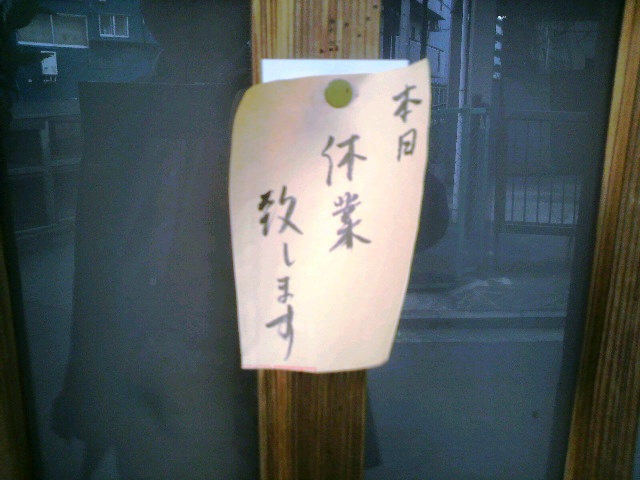 本日
休業
致します